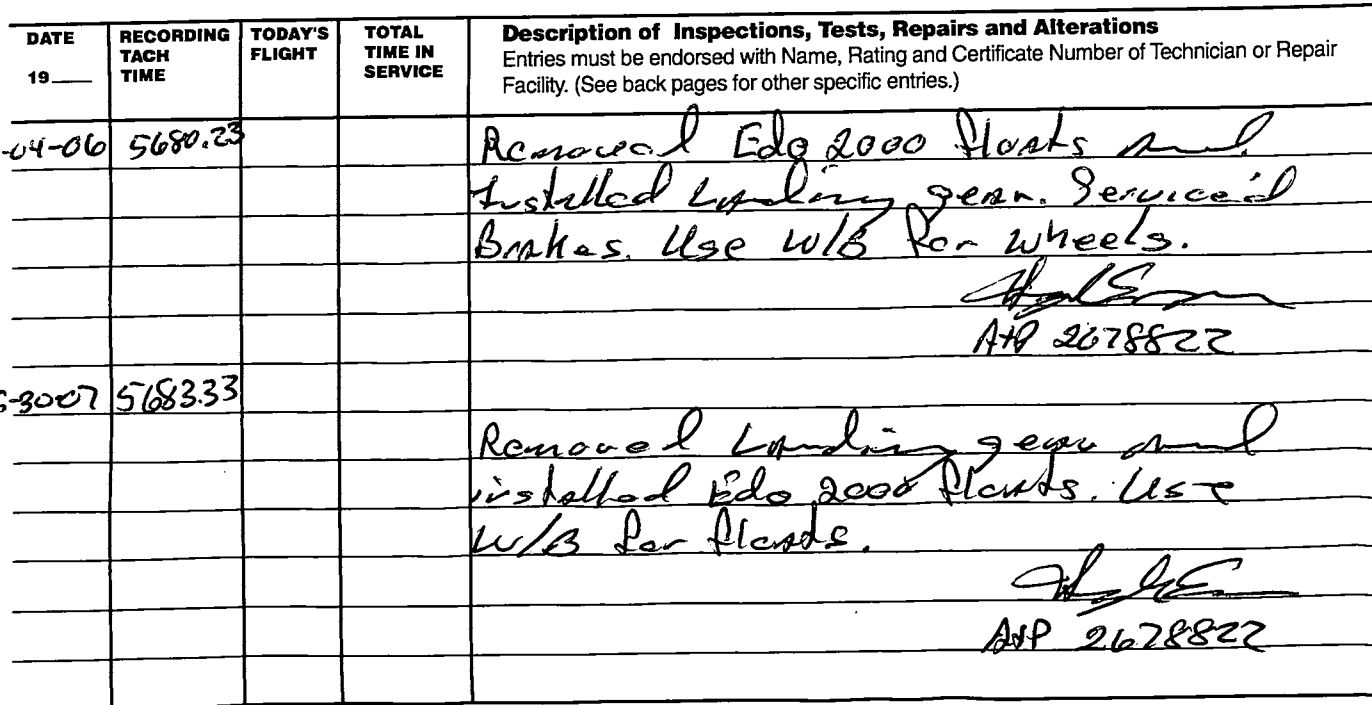 DATE RECORDING TODAY'S TOTAL Description of Inspections, Tests, Repairs and Alterations
TACH FLIGHT TIME IN Entries must be endorsed with Name, Rating and Certificate Number of Technician or Repair
19___ TIME SERVICE Facility. (See back pages for other specific entries.)
-04-06 5680.23 Removed Edo 2000 floats and
Installed Landing gear. Service'd
Brakes. Use W/B for wheels.
A+P 2678822
-30-07 5683.33
Removed Landing gear and
installed Edo 2000 floats. Use
W/B for floats.
A&P 2678822